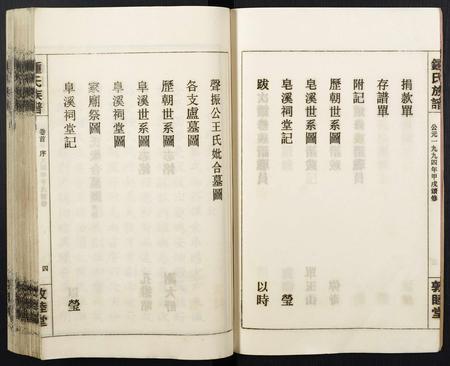 鍾氏族譜
公元一九九四年甲戌續修
敦睦堂
捐款單
存譜單
附記
歷朝世系圖
皂溪世系圖
皂溪祠堂記 瑩
跋 以時
聲振公王氏妣合墓圖
各支盧墓圖
歷朝世系圖
阜溪世系圖
阜溪祠堂圖
家廟祭圖
阜溪祠堂記 瑩
氏族譜
卷首 序
四
睦堂